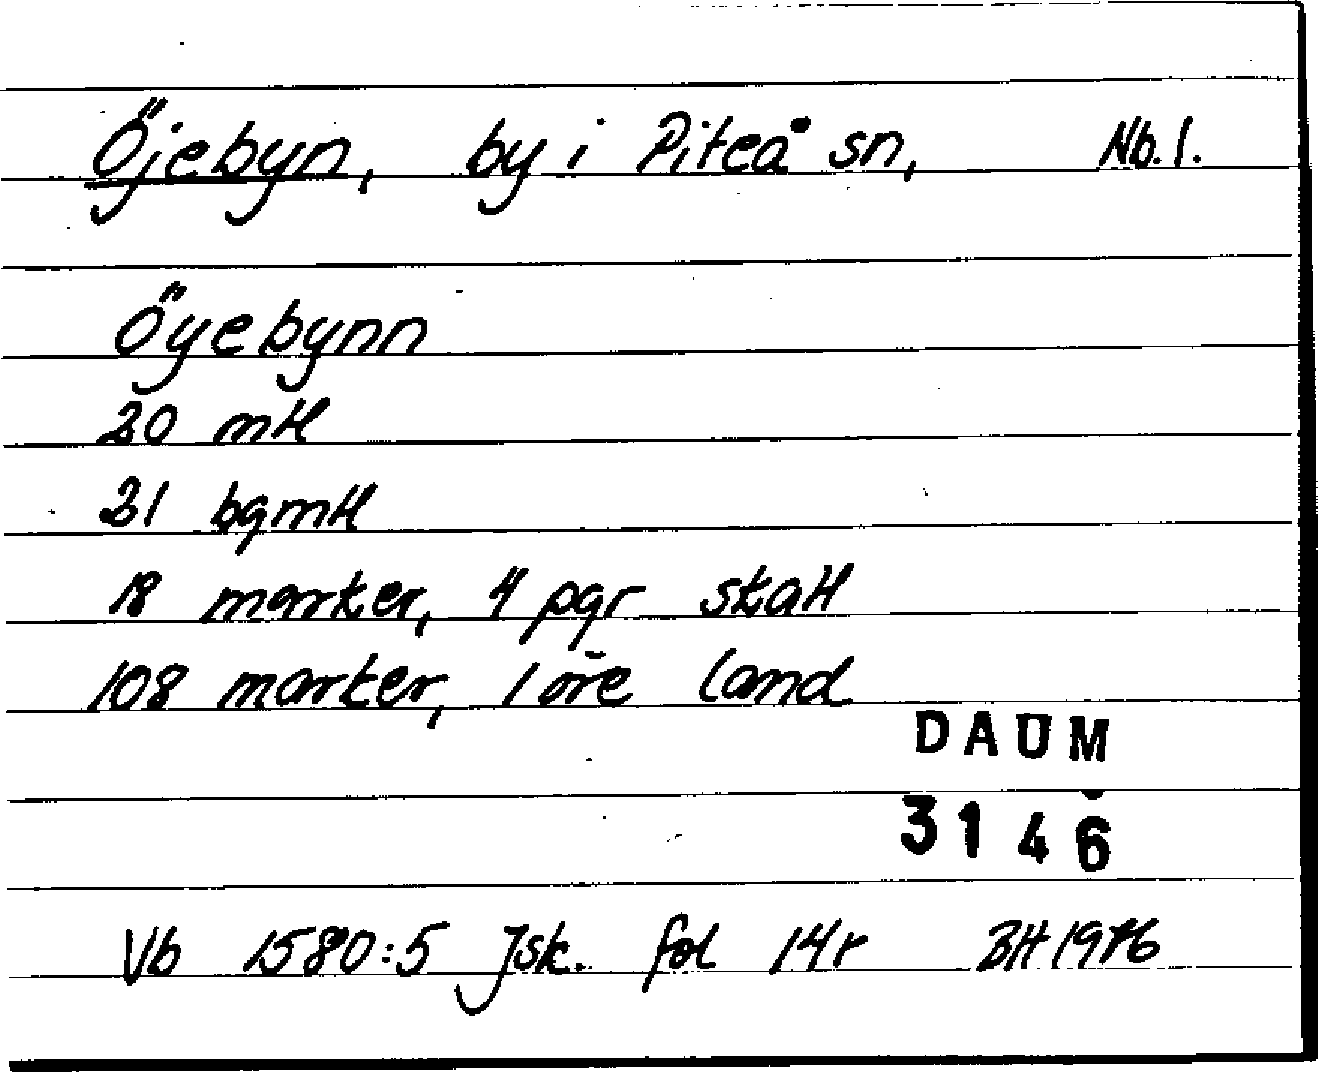 Öjebyn, by i Piteå sn, Nb.l.
Öyebynn
20 mtl
21 bgmtl
18 marker, 4 pgr skatt
108 marker, 1 öre land
DAUM
3146
Vb 1580:5 Jsk. fol 14r BH 1976